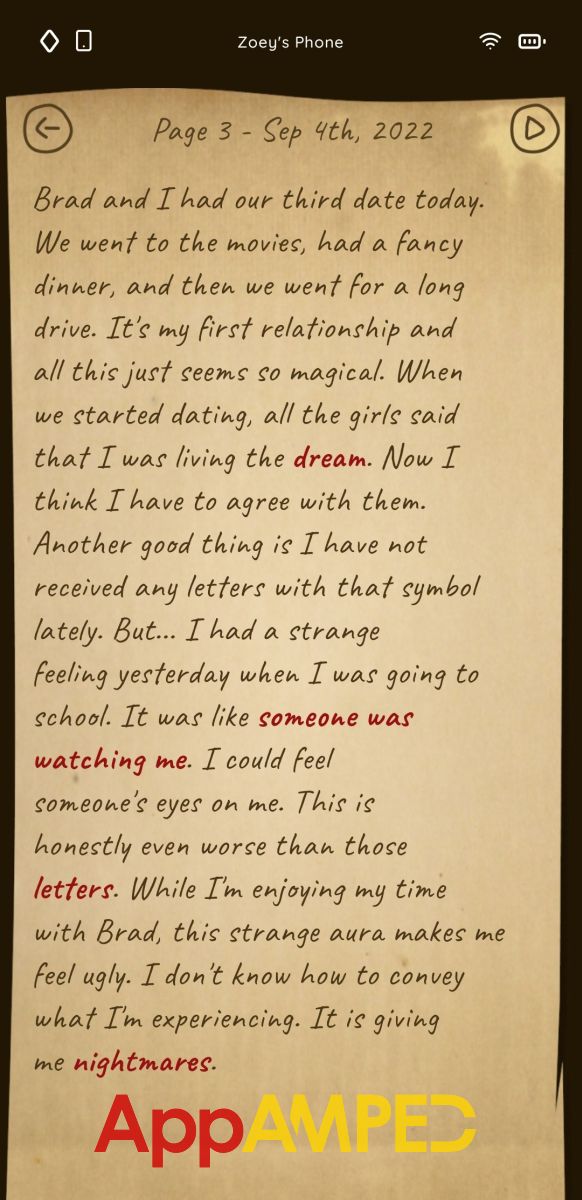 Zoey's Phone
Page 3 - Sep 4th, 2022
Brad and I had our third date today.
We went to the movies, had a fancy
dinner, and then we went for a long
drive. It's my first relationship and
all this just seems so magical. When
we started dating, all the girls said
that I was living the dream. Now I
think I have to agree with them.
Another good thing is I have not
received any letters with that symbol
lately. But... I had a strange
feeling yesterday when I was going to
school. It was like someone was
watching me. I could feel
someone's eyes on me. This is
honestly even worse than those
letters. While I'm enjoying my time
with Brad, this strange aura makes me
feel ugly. I don't know how to convey
what I'm experiencing. It is giving
me nightmares.
AppAMPED